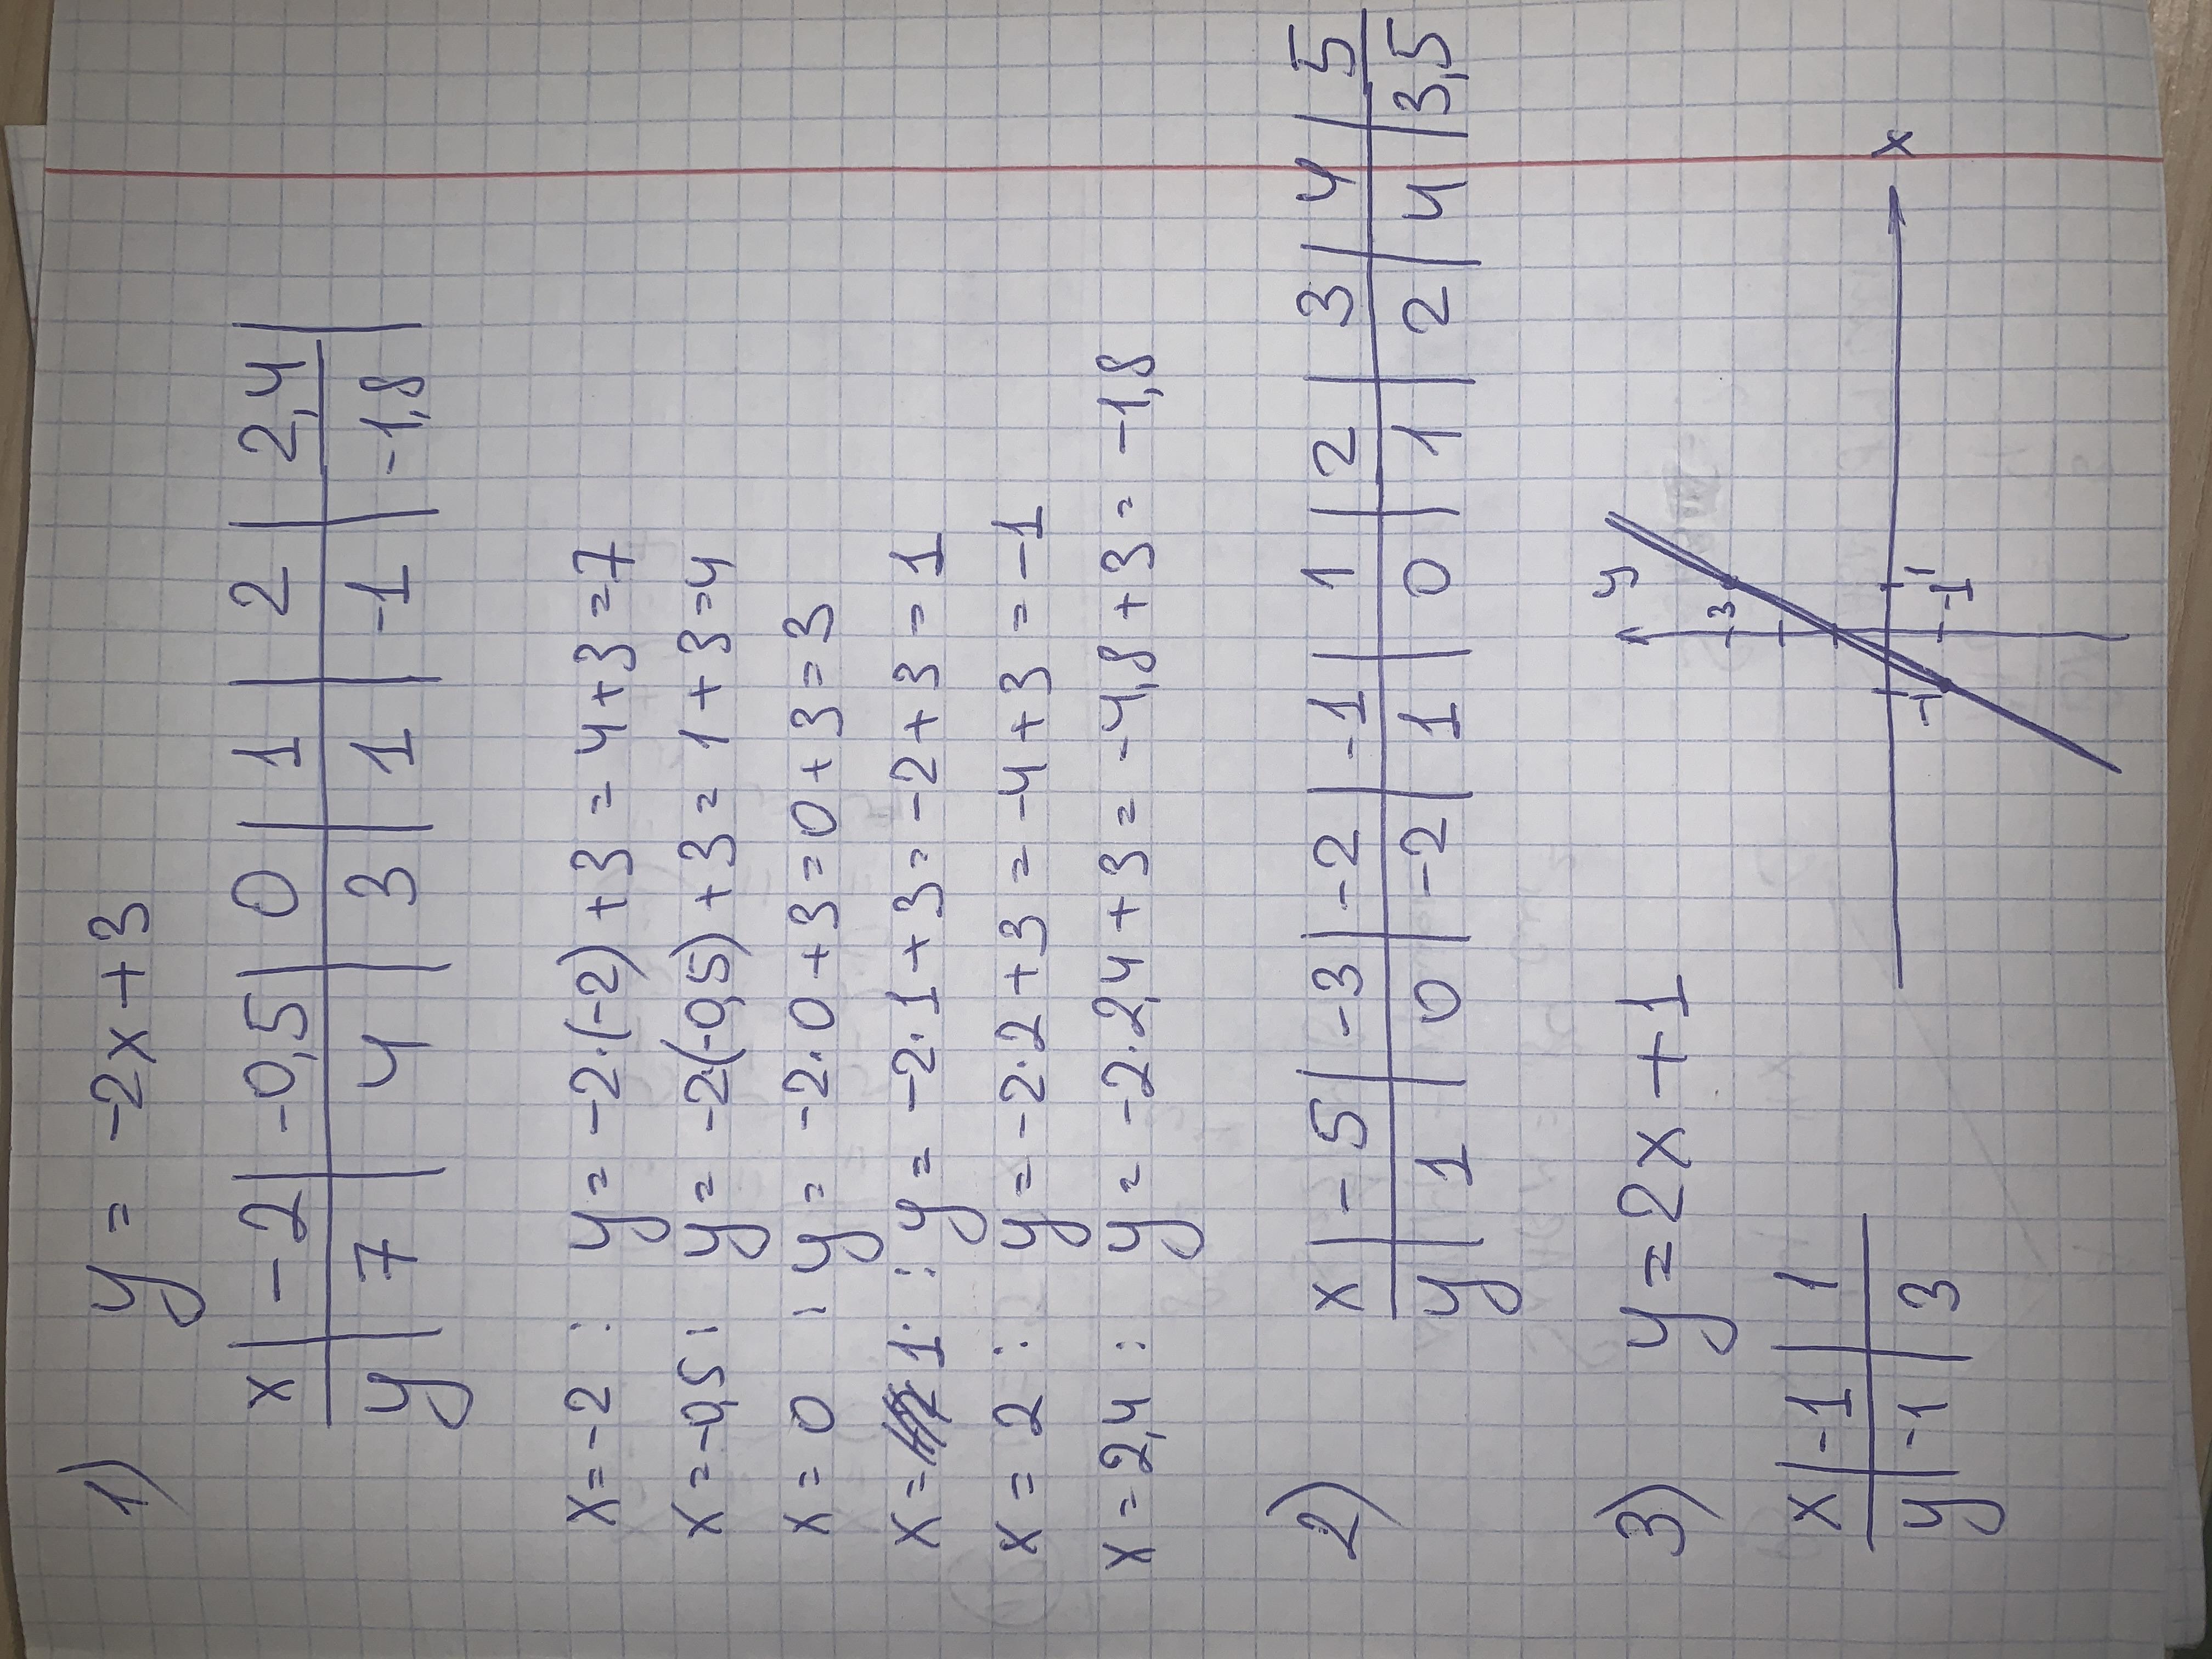 1) y = -2x+3
x | -2 | -0,5 | 0 | 1 | 2 | 2,4 |
y | 7 | 4 | 3 | 1 | -1 | -1,8 |
x=-2 : y= -2·(-2) +3 = 4+3=7
x=-0,5 : y= -2·(-0,5)+3= 1+3=4
x = 0 : y= -2·0+3=0+3=3
x= 1 : y= -2·1+3=-2+3=1
x = 2 : y=-2·2+3=-4+3=-1
x=2,4 : y= -2·2,4+3= -4,8+3= -1,8
2) x | -5 | -3 | -2 | -1 | 1 | 2 | 3 | 4 | 5
y | 1 | 0 | -2 | 1 | 0 | 1 | 2 | 4 | 3,5
3) y=2x+1
x | -1 | 1
y | -1 | 3
y
3
x
-1 1
-1